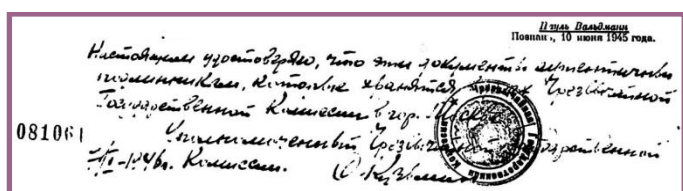 Пауль Вальдманн
Познань, 10 июня 1945 года.
Настоящим удостоверяю, что эти документы аутентичны
подлинникам, которые хранятся в Чрезвычайной
Государственной Комиссии в гор. Москве
081061
Уполномоченный Чрезвычайной Государственной
Комиссии.